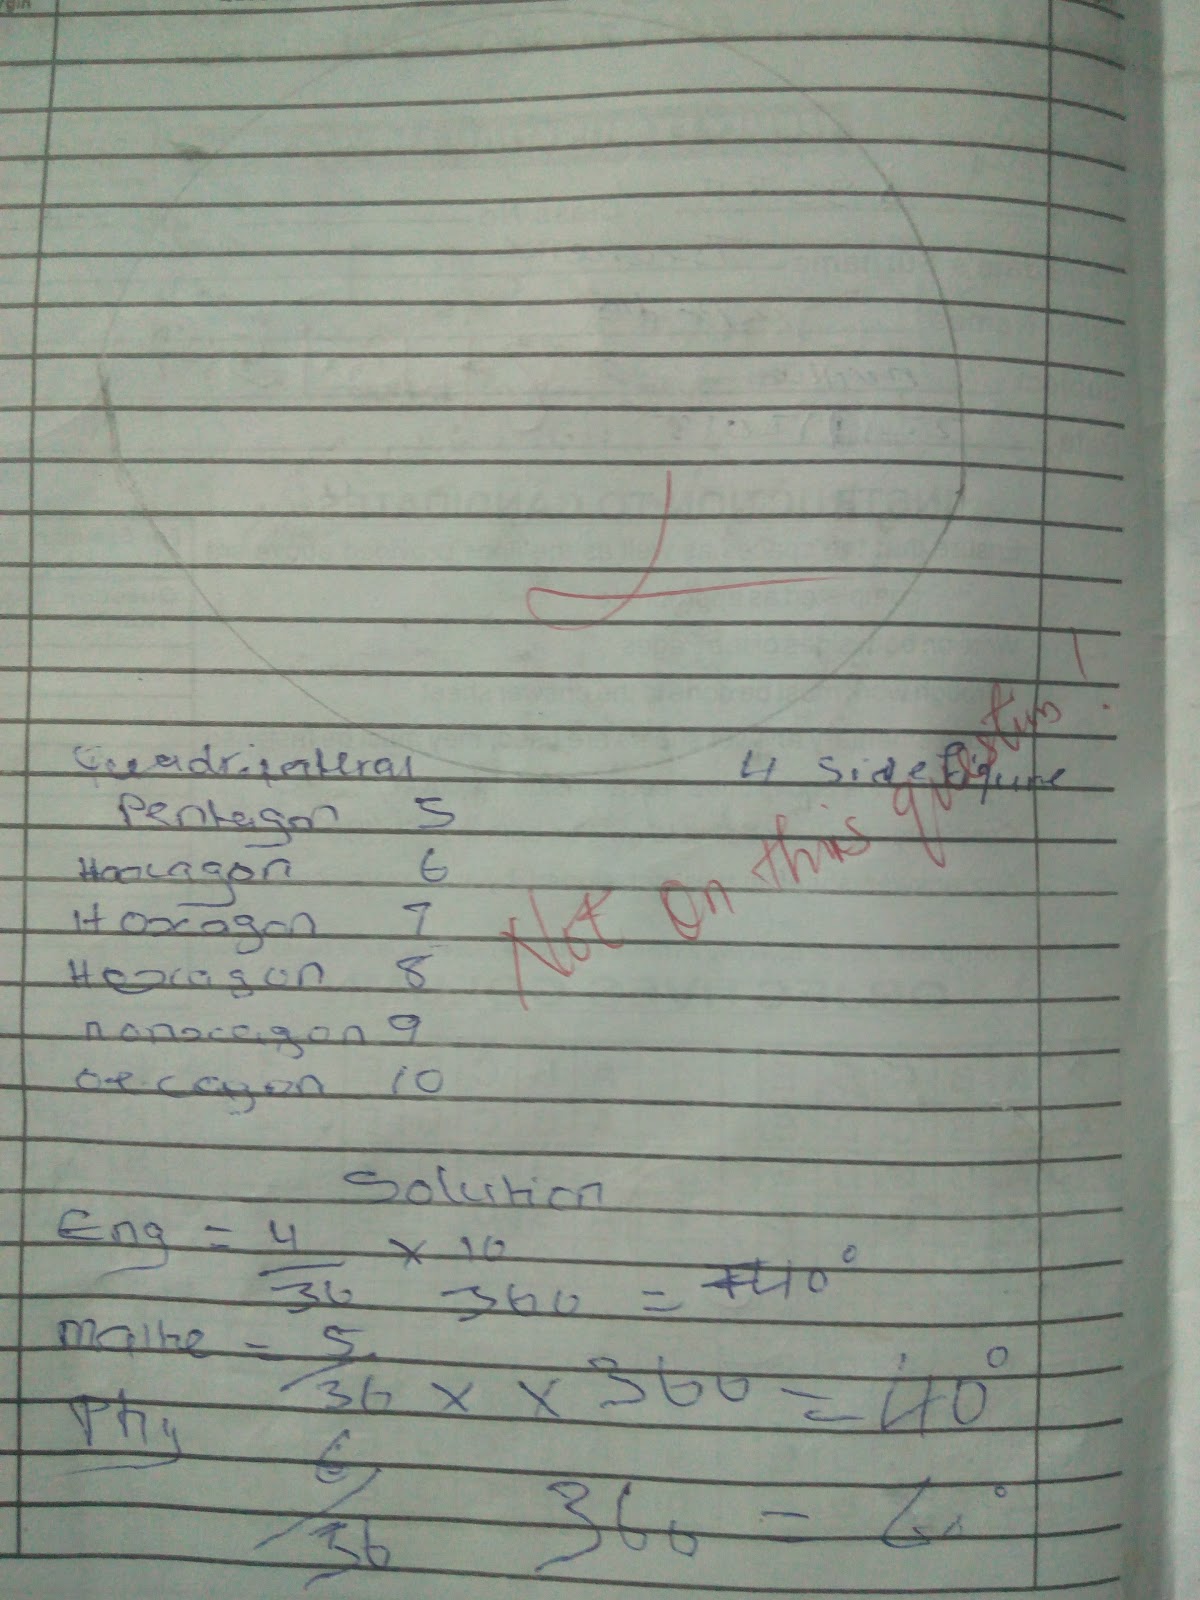 Quadrilateral 4 side figure
Pentagon 5
Hexagon 6
Hoxagon 7
Hexagon 8
nonoxagon 9
decagon 10
Not on this question !
Solution
Eng = 4/36 × 10 360 = 40°
Maths = 5/36 × × 360 = 40°
Phy 6/36 360 = 60°